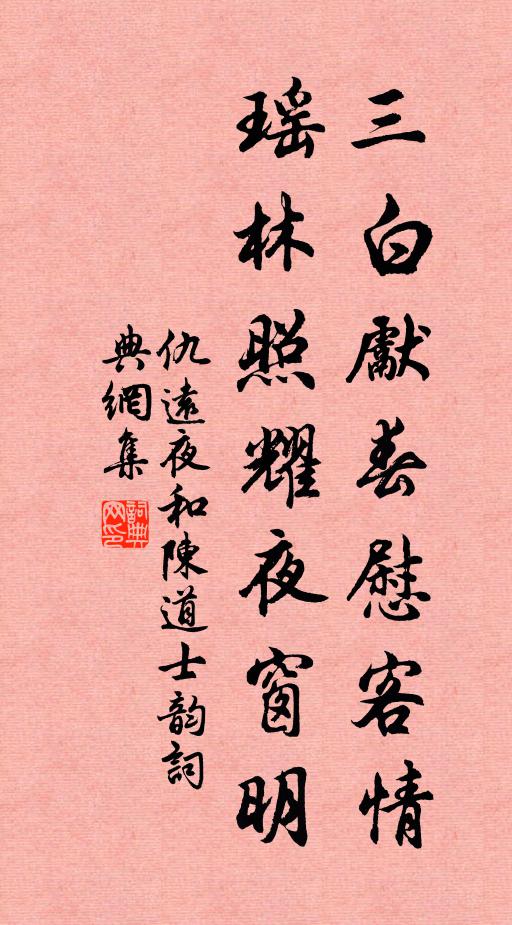 三白獻春慰客情
瑶林照耀夜窗明
仇遠夜和陳道士韵詞
典網集
詞典网印